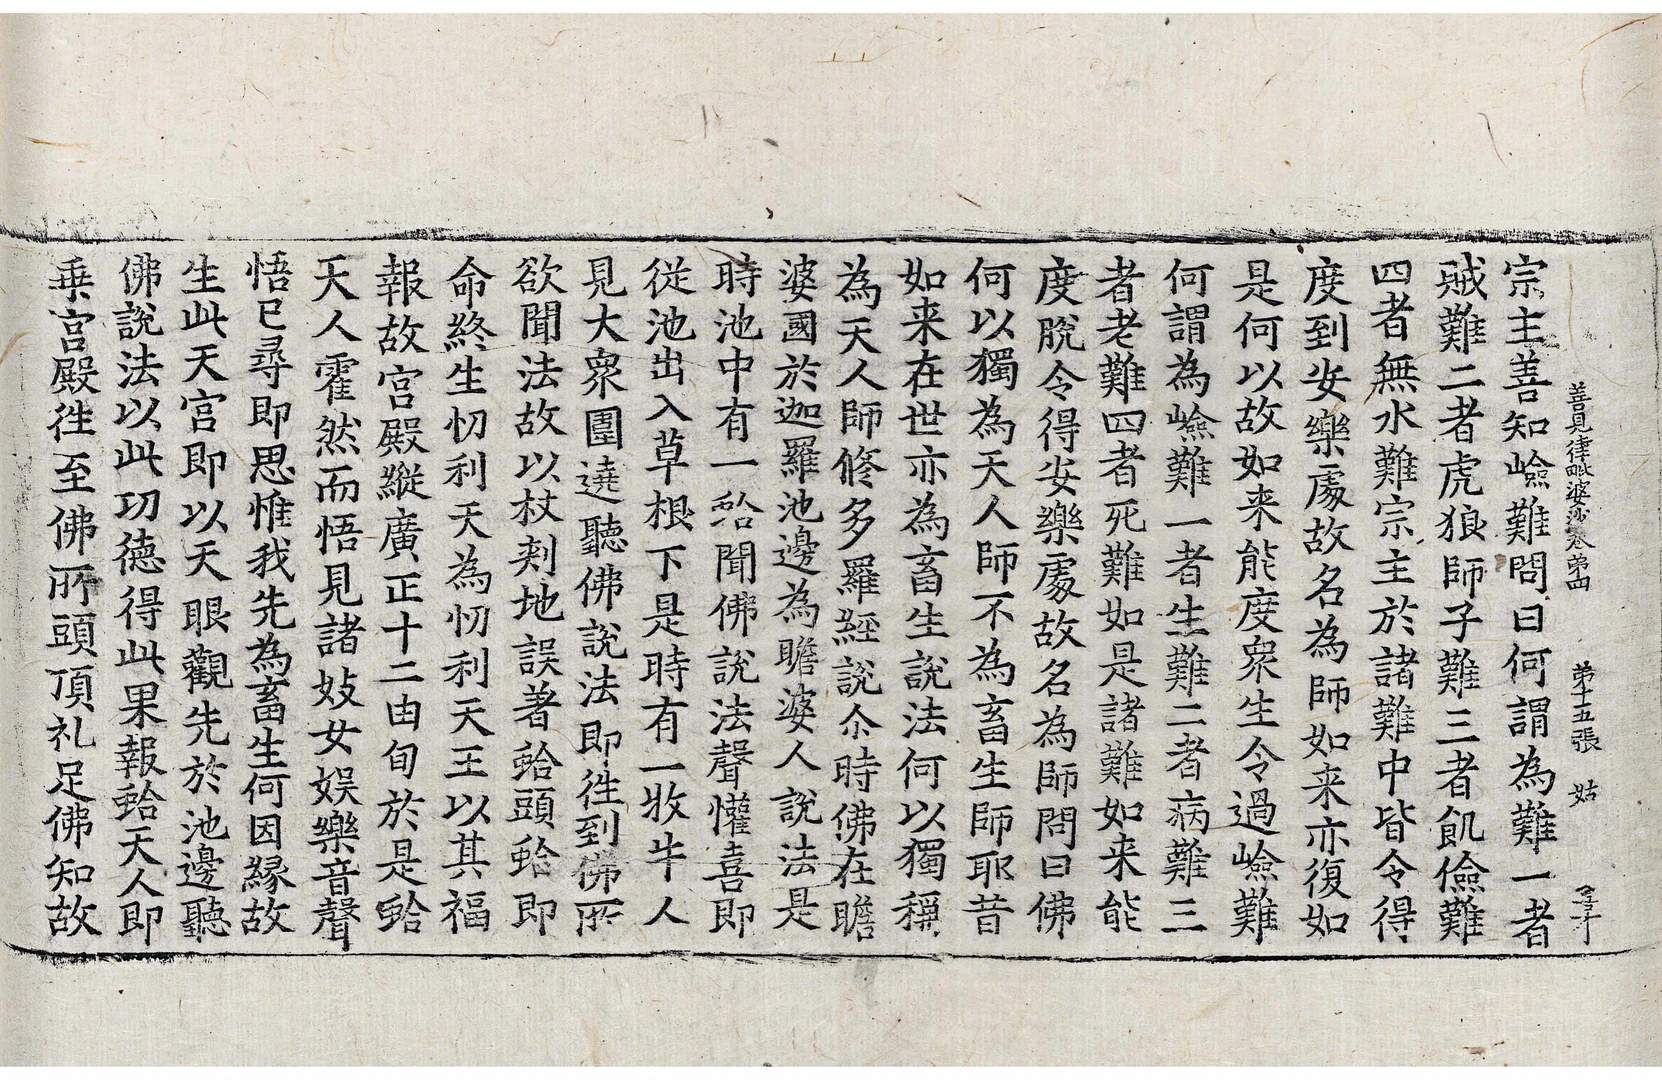 善見律毗婆沙卷第四　第十五張　姑
宗主善知嶮難問曰何謂為難一者
賊難二者虎狼師子難三者飢儉難
四者無水難宗主於諸難中皆令得
度到安樂處故名為師如来亦復如
是何以故如来能度衆生令過嶮難
何謂為嶮難一者生難二者病難三
者老難四者死難如是諸難如来能
度脫令得安樂處故名為師問曰佛
何以獨為天人師不為畜生師耶昔
如来在世亦為畜生說法何以獨稱
為天人師俢多羅經說尒時佛在瞻
婆國於迦羅池邊為瞻婆人說法是
時池中有一蛤聞佛說法聲懽喜即
從池出入草根下是時有一牧牛人
見大衆圍遶聽佛說法即徃到佛所
欲聞法故以杖刾地誤著蛤頭蛤即
命終生忉利天為忉利天王以其福
報故宮殿縱廣正十二由旬於是蛤
天人霍然而悟見諸妓女娱樂音聲
悟已尋即思惟我先為畜生何因緣故
生此天宮即以天眼觀先於池邊聽
佛說法以此功德得此果報蛤天人即
乗宮殿徃至佛所頭頂礼足佛知故